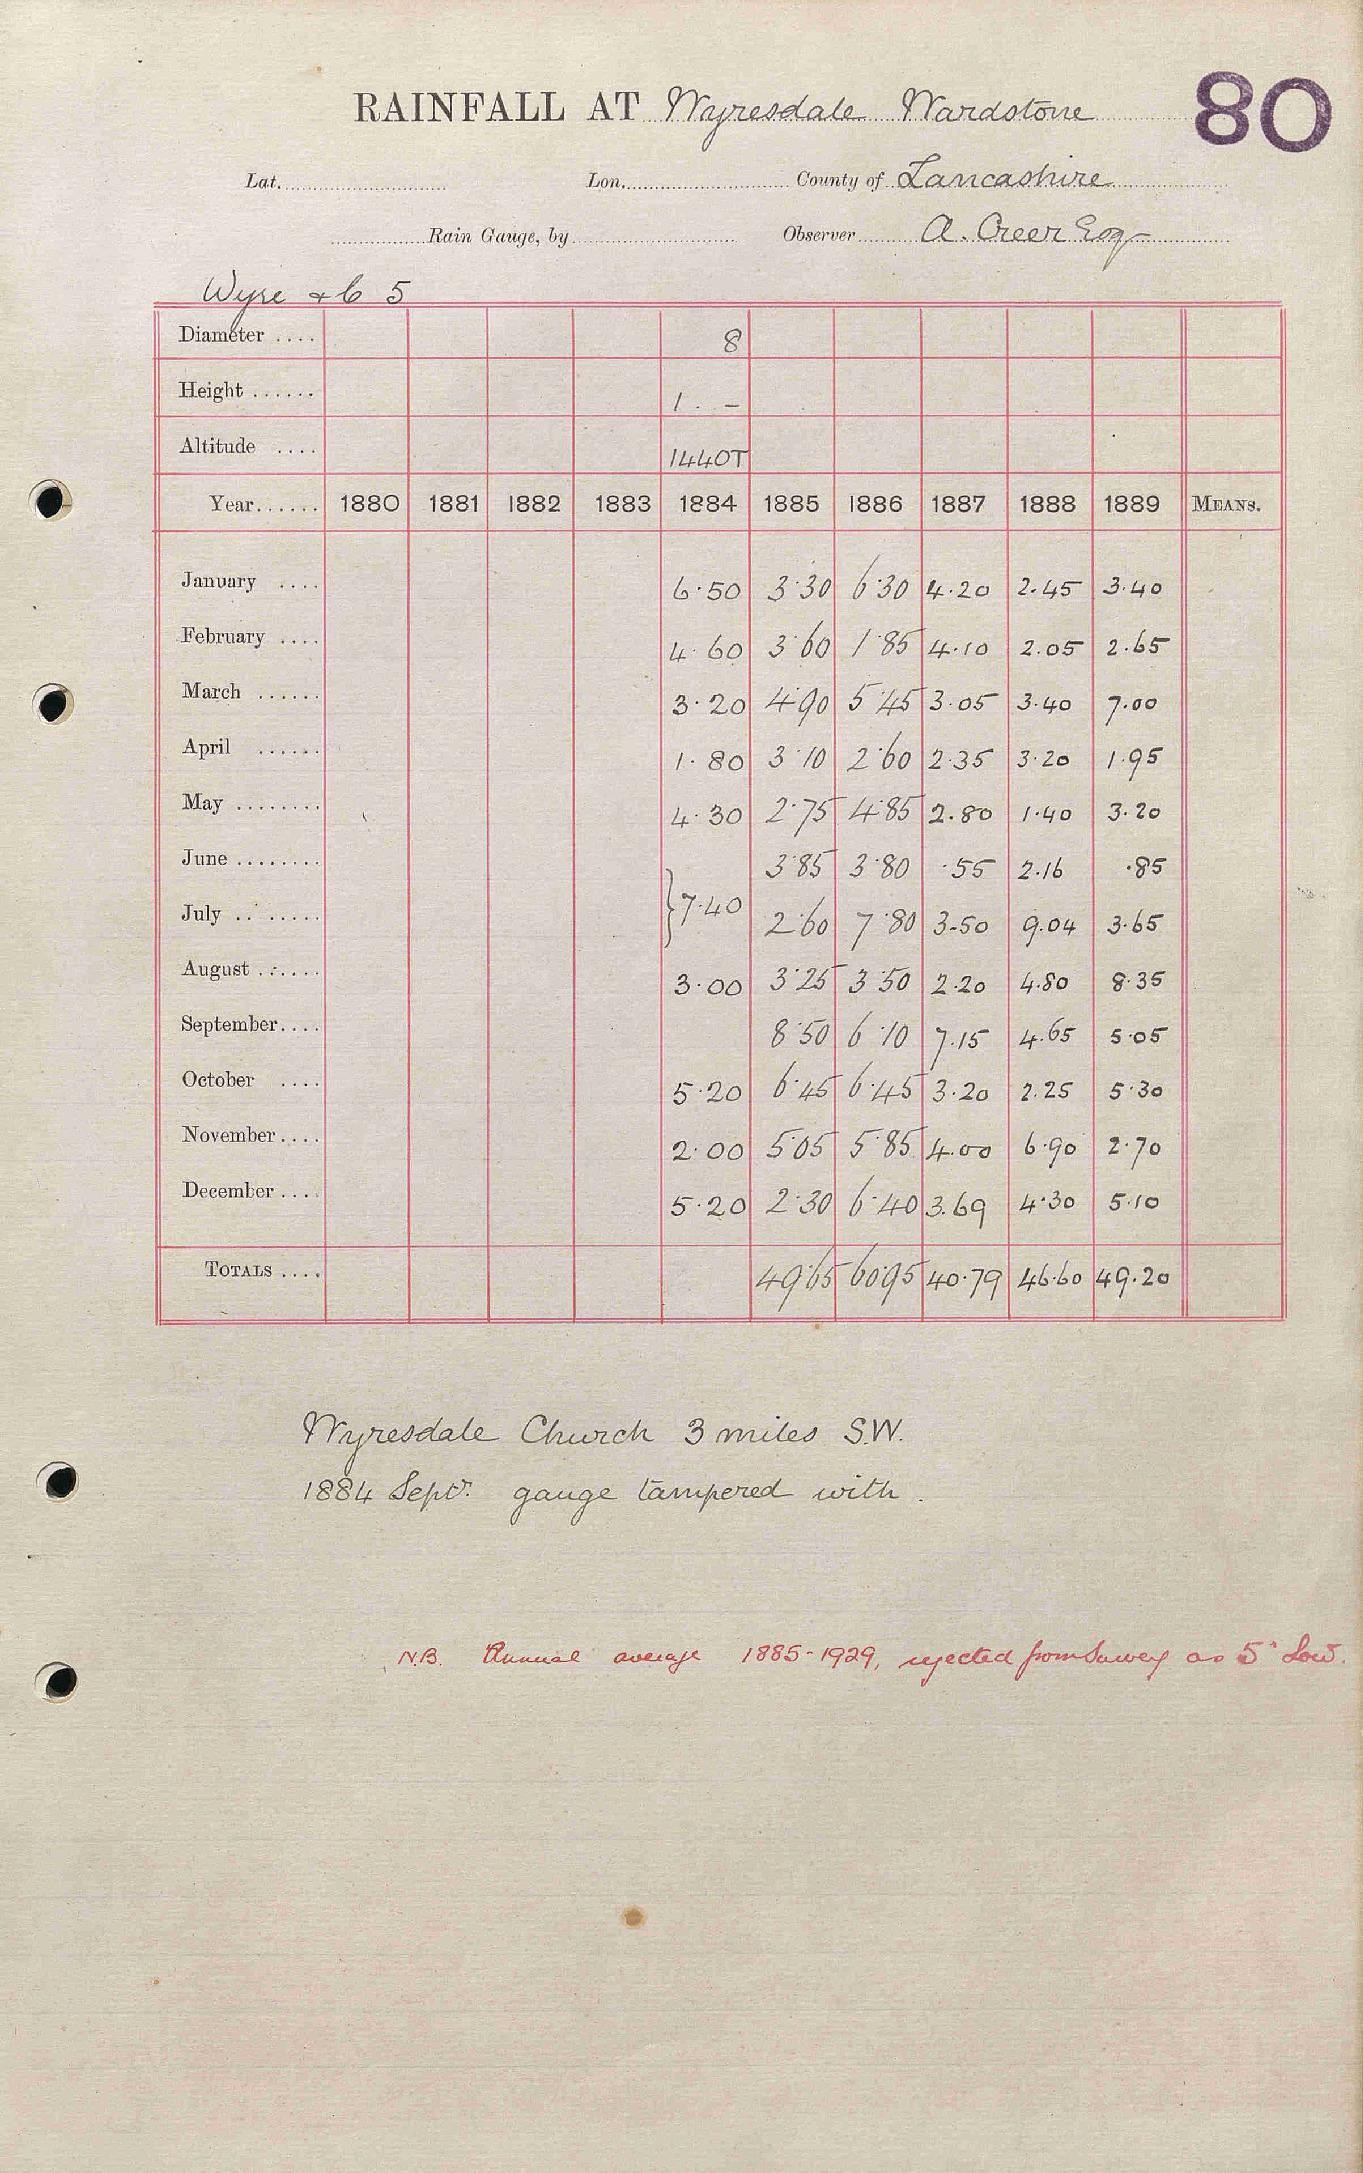 80
RAINFALL AT Wyresdale Wardstone
Lat. Lon. County of Lancashire
Rain Gauge, by Observer A. Creer Esq
Wyre & C 5
Diameter .... 8
Height ...... 1 . –
Altitude .... 1440T
Year...... 1880 1881 1882 1883 1884 1885 1886 1887 1888 1889 MEANS.
January .... 6.50 3.30 6.30 4.20 2.45 3.40
February .... 4.60 3.60 1.85 4.10 2.05 2.65
March ...... 3.20 4.90 5.45 3.05 3.40 7.00
April ...... 1.80 3.10 2.60 2.35 3.20 1.95
May ........ 4.30 2.75 4.85 2.80 1.40 3.20
June ........ 3.85 3.80 .55 2.16 .85
July ........ }7.40 2.60 7.80 3.50 9.04 3.65
August ...... 3.00 3.25 3.50 2.20 4.80 8.35
September.... 8.50 6.10 7.15 4.65 5.05
October .... 5.20 6.45 6.45 3.20 2.25 5.30
November.... 2.00 5.05 5.85 4.00 6.90 2.70
December .... 5.20 2.30 6.40 3.69 4.30 5.10
TOTALS .... 49.65 60.95 40.79 46.60 49.20
Wyresdale Church 3 miles S.W.
1884 Septr. gauge tampered with .
N.B. Annual average 1885-1929, rejected from Survey as 5" Low.